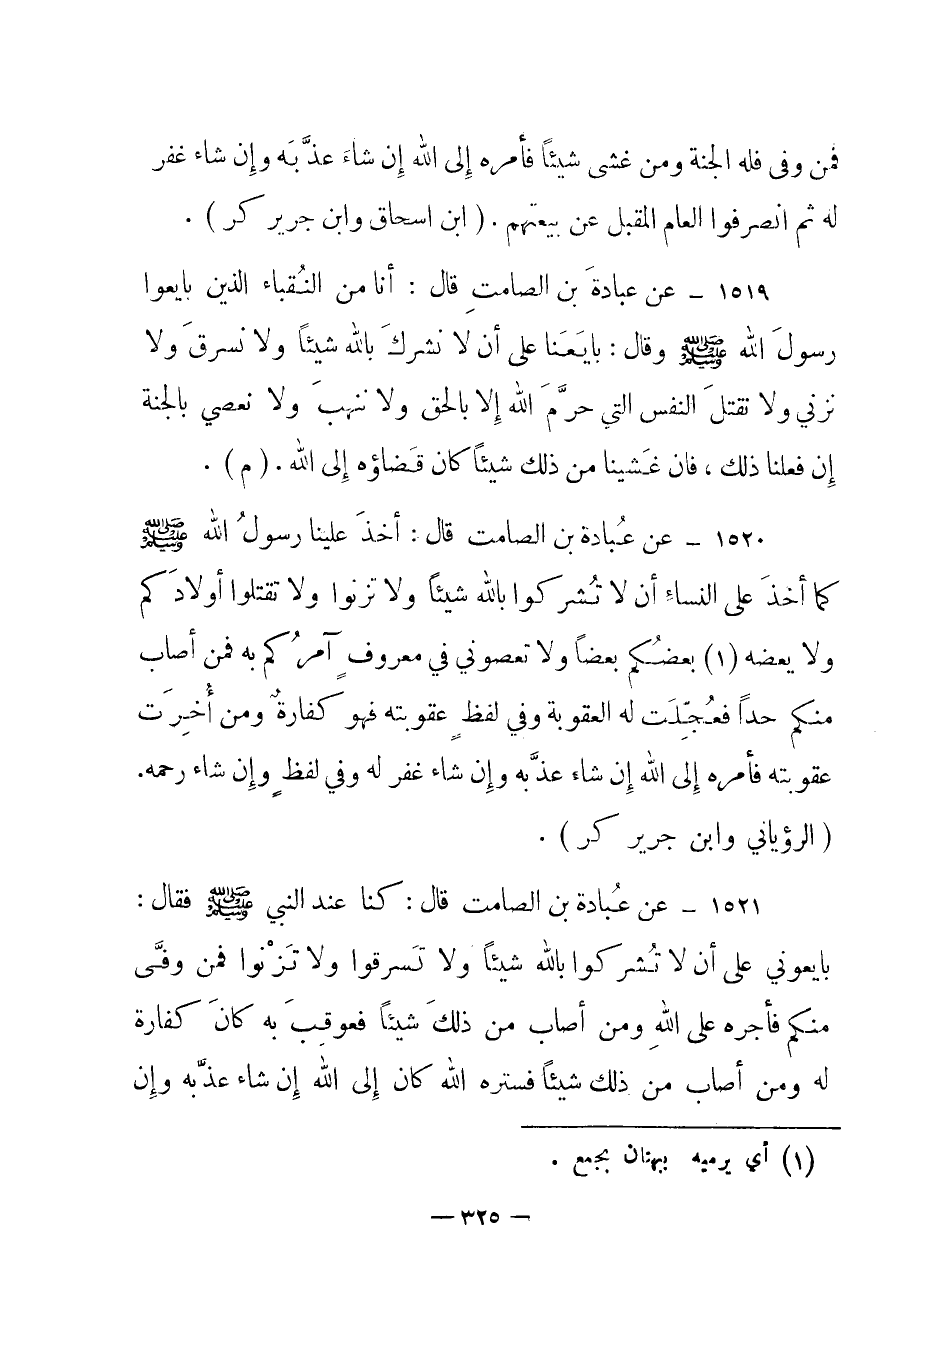 فمن وفى فله الجنة ومن غشى شيئاً فأمره إلى الله إن شاءَ عذَّبَه وإن شاء غفر
له ثم انصرفوا العام المقبل عن بيعتهم . ( ابن اسحاق وابن جرير كر ) .
١٥١٩ ـ عن عبادةَ بن الصامتِ قال : أنا من النُقباء الذين بايعوا
رسولَ الله ﷺ وقال : بايَعَنا على أن لا نشركَ بالله شيئاً ولا نسرقَ ولا
نزني ولا نقتلَ النفس التي حرَّمَ الله إلا بالحق ولا ننهبَ ولا نعصي بالجنة
إن فعلنا ذلك ، فان غَشينا من ذلك شيئاً كان قَضاؤه إلى الله . ( م ) .
١٥٢٠ ـ عن عُبادة بن الصامت قال : أخذَ علينا رسولُ الله ﷺ
كما أخذَ على النساءِ أن لا تُشركوا بالله شيئاً ولا تزنوا ولا تقتلوا أولادَكم
ولا يعضه (١) بعضُكم بعضاً ولا تعصوني في معروفٍ آمرُكم به فمن أصاب
منكم حداً فعُجِّلَت له العقوبة وفي لفظٍ عقوبته فهو كفارةٌ ومن أُخِرَت
عقوبته فأمره إلى الله إن شاء عذَّبه وإن شاء غفر له وفي لفظٍ وإن شاء رحمه.
( الرؤياني وابن جرير كر ) .
١٥٢١ ـ عن عُبادة بن الصامت قال : كنا عند النبي ﷺ فقال :
بايعوني على أن لا تُشركوا بالله شيئاً ولا تَسرقوا ولا تَزْنوا فمن وفَّى
منكم فأجره على اللهِ ومن أصاب من ذلكَ شيئاً فعوقبَ به كانَ كفارة
له ومن أصاب من ذلك شيئاً فستره الله كان إلى الله إن شاء عذَّبه وإن
(١) أي يرميه ببهتان بجمع .
— ٣٢٥ —